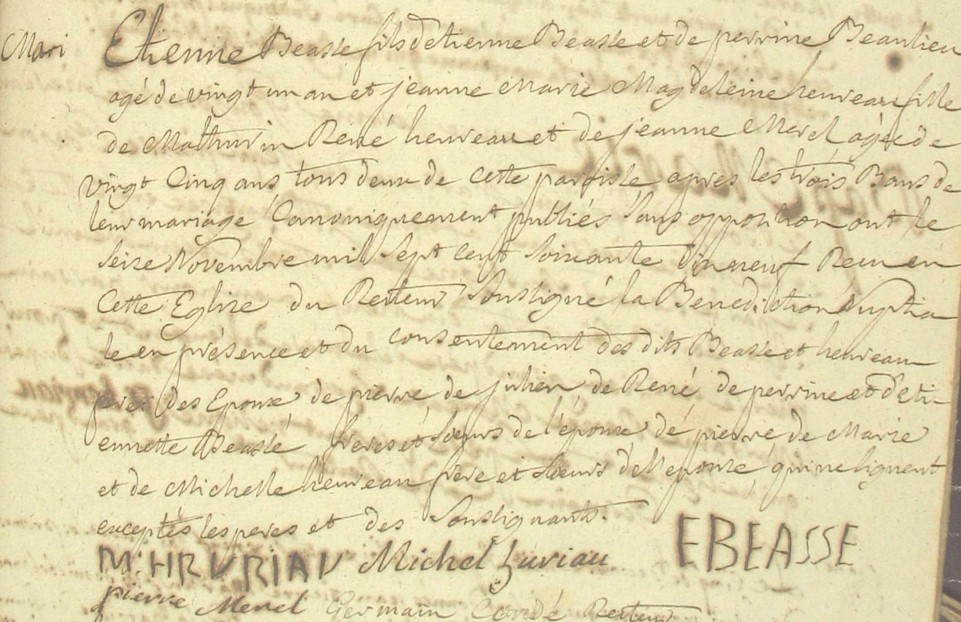 Mari
Etienne Beasse fils detienne Beasse et de perrine Beaulieu
agé de vingt un an et jeanne Marie Magdeleine heureau fille
de Mathurin René heureau et de jeanne Merel agée de
vingt Cinq ans tous deux de cette paroisse apres les trois Bans de
leur mariage Canoniquement publiés Sans opposition ont le
seize Novembre mil Sept cent Soixante Dixneuf Recu en
Cette Eglize du Recteur Soussigné la Benediction Nuptia
le en présence et du consentement des dits Beasse et heureau
peres des Epoux de pierre de julien de René de perrine et d'eti
ennette Beasse freres et Sœurs de l'époux de pierre de Marie
et de Michelle heureau frère et Sœurs de l'epouse qui ne signent
exceptés les peres et des Soussignants.
M. HRURIAU Michel huriau EBEASSE
pierre Merel Germain Recteur